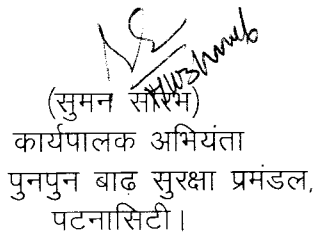 (सुमन सौरभ)
कार्यपालक अभियंता
पुनपुन बाढ़ सुरक्षा प्रमंडल,
पटनासिटी।